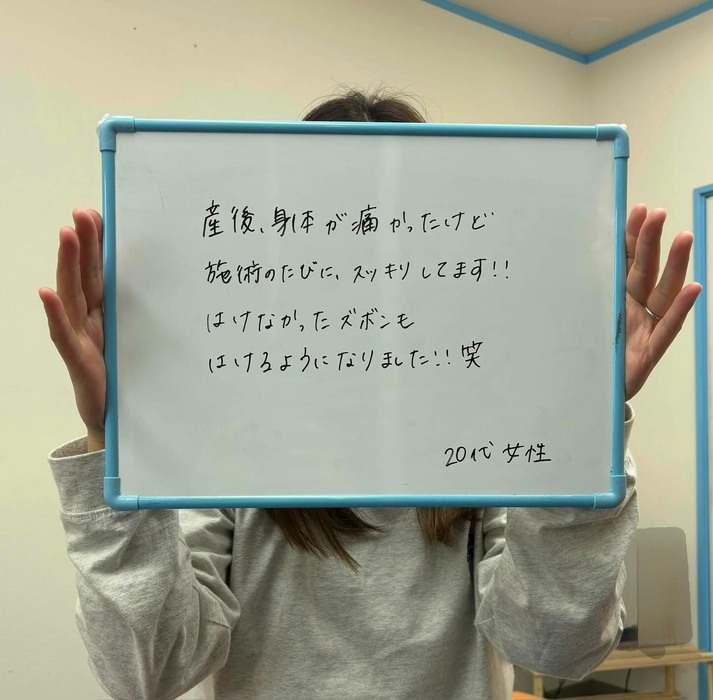 産後、身体が痛かったけど
施術のたびに、スッキリしてます!!
はけなかったズボンも
はけるようになりました!! 笑
20代 女性